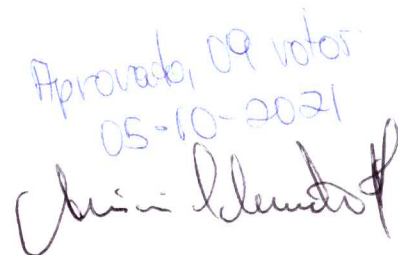 Aprovado, 09 votos
05-10-2021